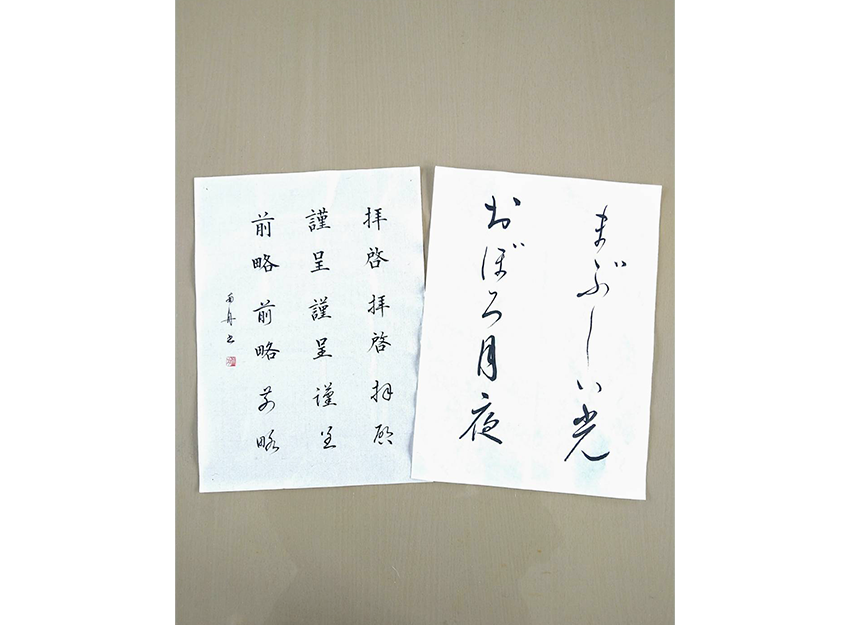 まぶしい光
おぼろ月夜
拝啓 拝啓 拝啓
謹呈 謹呈 謹呈
前略 前略 前略